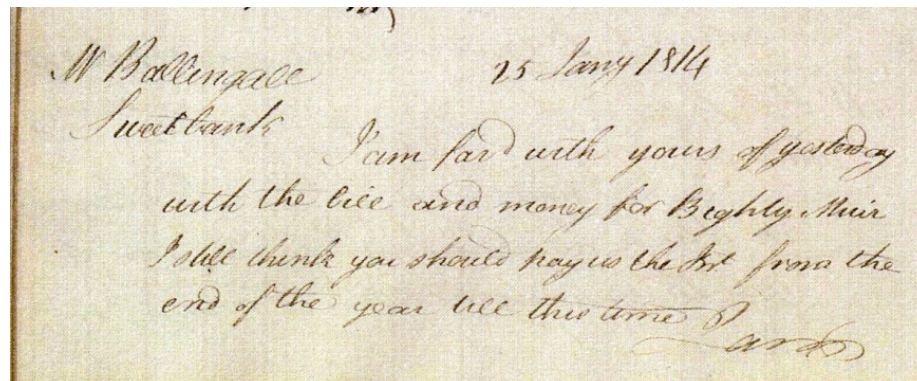 Mr Ballingale
25 Jany 1814
Sweetbank
I am favd with yours of yesterday
with the bill and money for Beghly Muir
I still think you should pay us the Int from the
end of the year till this time